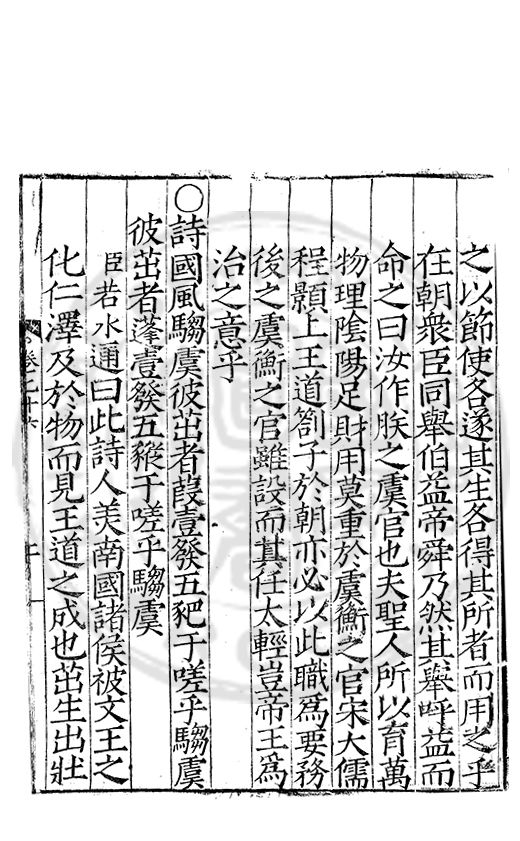 之以節使各遂其生各得其所者而用之乎
在朝衆臣同舉伯益帝舜乃然其舉呼益而
命之曰汝作朕之虞官也夫聖人所以育萬
物理隂陽足財用莫重於虞衡之官宋大儒
程顥上王道劄子於朝亦必以此職爲要務
後之虞衡之官雖設而其任太輕豈帝王爲
治之意乎
○詩國風騶虞彼茁者葭壹發五豝于嗟乎騶虞
彼茁者蓬壹發五豵于嗟乎騶虞
臣若水通曰此詩人美南國諸侯被文王之
化仁澤及於物而見王道之成也茁生出壯